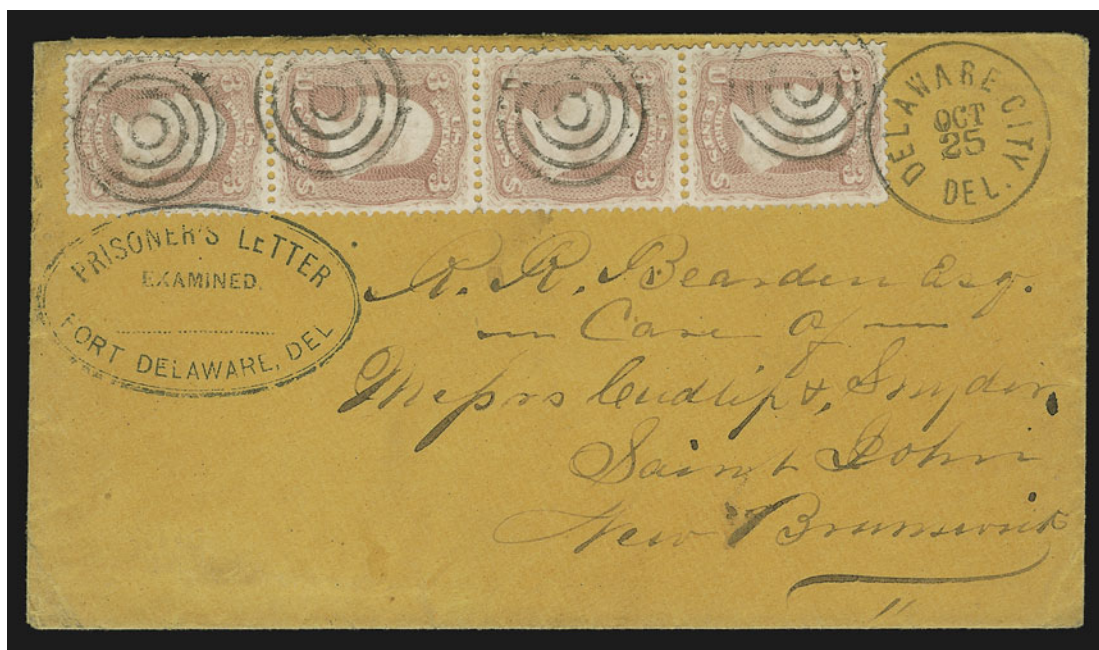 DELAWARE CITY
OCT
25
DEL.
PRISONER'S LETTER
EXAMINED.
FORT DELAWARE, DEL
A. R. Bearden Esq.
Care of
Messrs Cudlip &, Snyder,
Saint John
New Brunswick